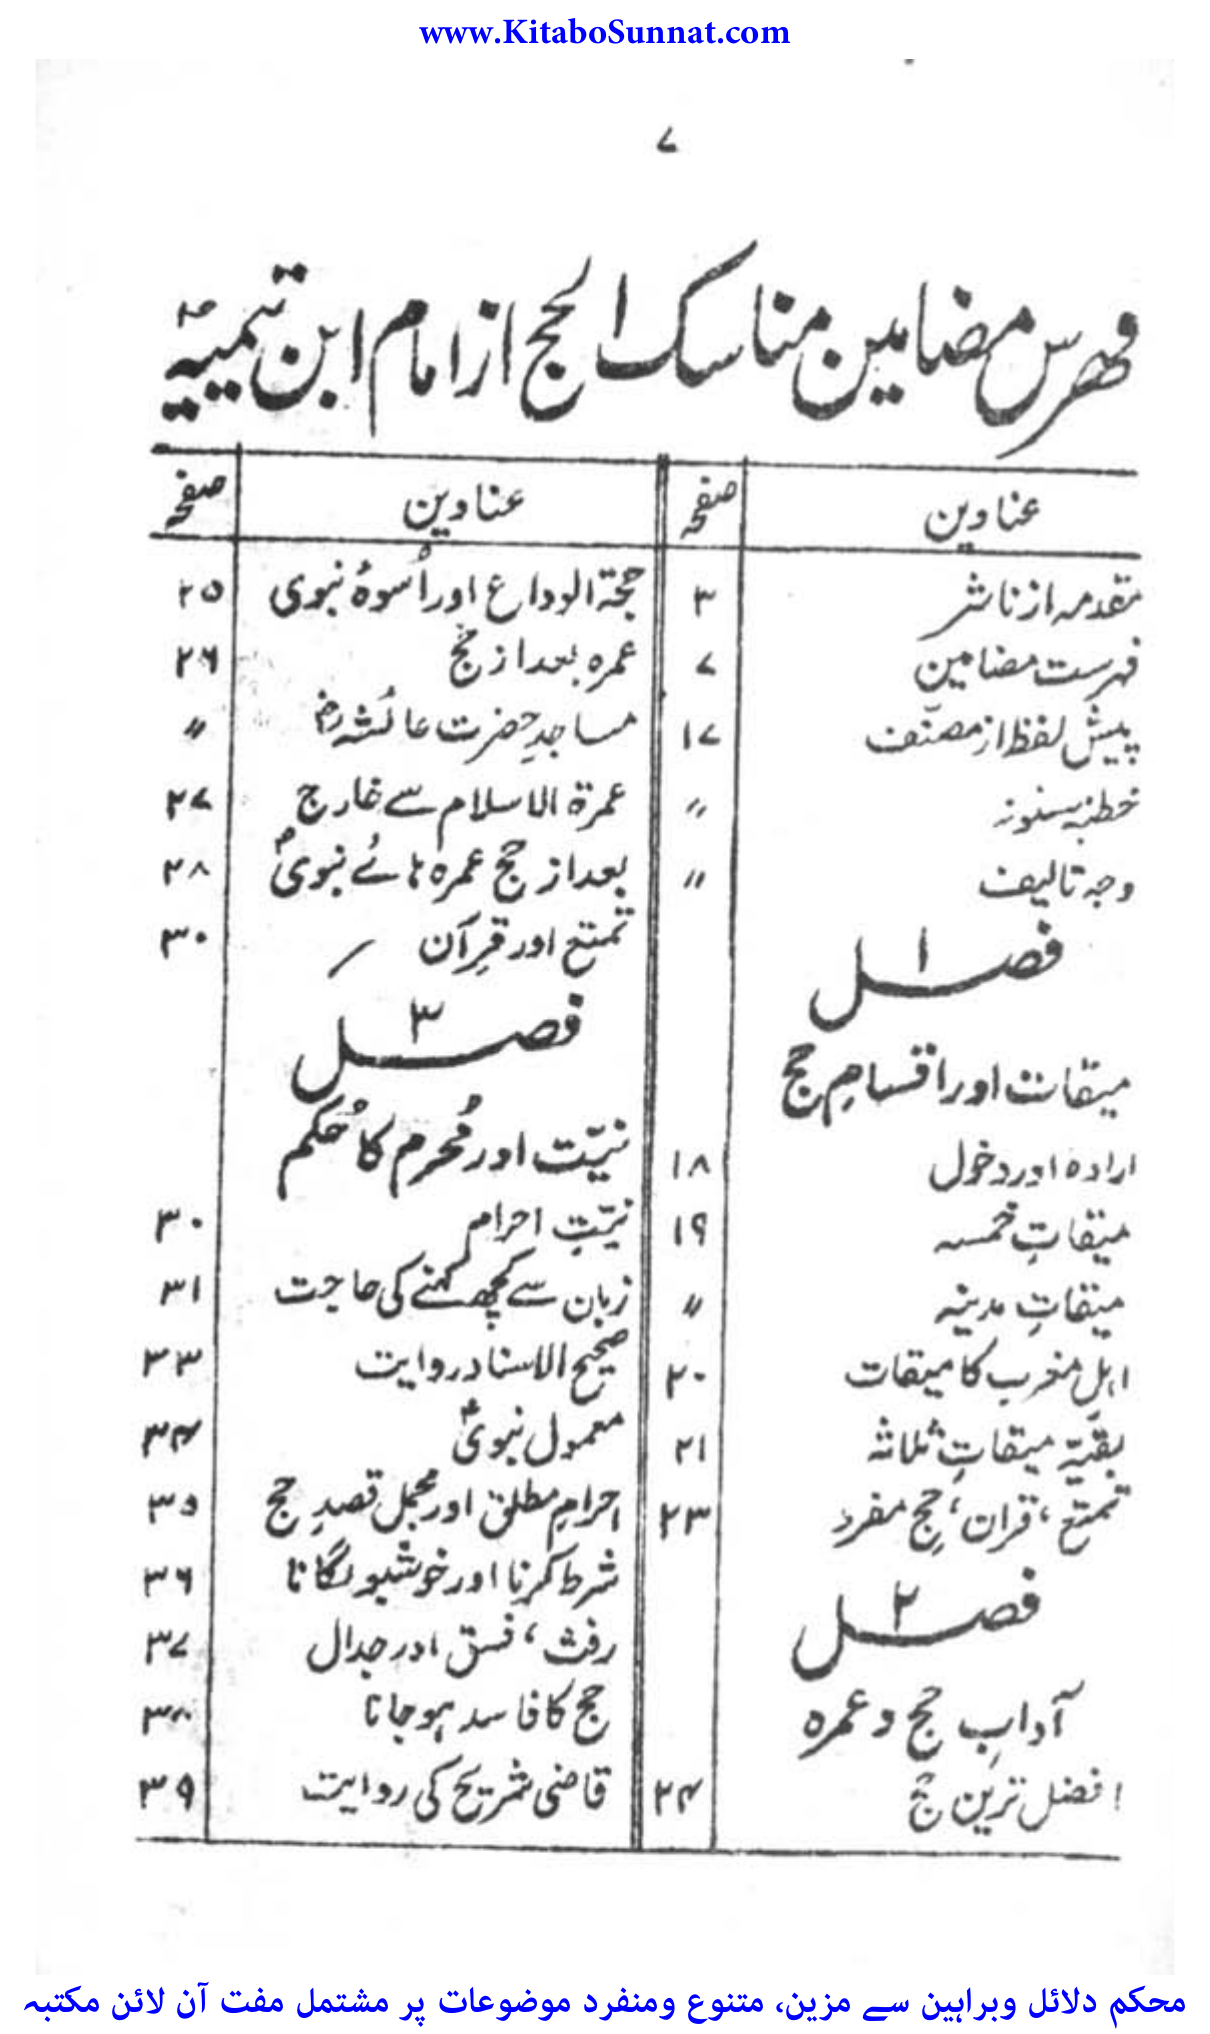 www.KitaboSunnat.com
۷
فہرس مضامین مناسک الحج از امام ابن تیمیہؒ
عناوین صفحہ
مقدمہ از ناشر ۳
فہرست مضامین ۷
پیش لفظ از مصنّف ۱۷
خطبہ سنونہ 〃
وجہ تالیف 〃
فصل ۱
میقات اور اقسامِ حج
ارادہ اور دخول ۱۸
میقاتِ خمسہ ۱۹
میقاتِ مدینہ 〃
اہلِ مغرب کا میقات ۲۰
بقیّہ میقاتِ ثلاثہ ۲۱
تمتع، قران، حجِ مفرد ۲۳
فصل ۲
آدابِ حج و عمرہ
افضل ترین حج ۲۴
عناوین صفحہ
حجۃ الوداع اور اُسوۂ نبوی ۲۵
عمرہ بعد از حج ۲۶
مساجدِ حضرت عائشہؓ 〃
عمرۃ الاسلام سے خارج ۲۷
بعد از حج عمرہ ہائے نبویؐ ۲۸
تمتع اور قِرآن ۳۰
فصل ۳
نیّت اور مُحرم کا حُکم
نیّتِ احرام ۳۰
زبان سے کچھ کہنے کی حاجت ۳۱
صحیح الاسناد روایت ۳۳
معمول نبویؐ ۳۴
احرامِ مطلق اور مجمل قصدِ حج ۳۵
شرط کرنا اور خوشبو لگانا ۳۶
رفث، فسق اور جدال ۳۷
حج کا فاسد ہو جانا ۳۸
قاضی شریح کی روایت ۳۹
محکم دلائل وبراہین سے مزین، متنوع ومنفرد موضوعات پر مشتمل مفت آن لائن مکتبہ